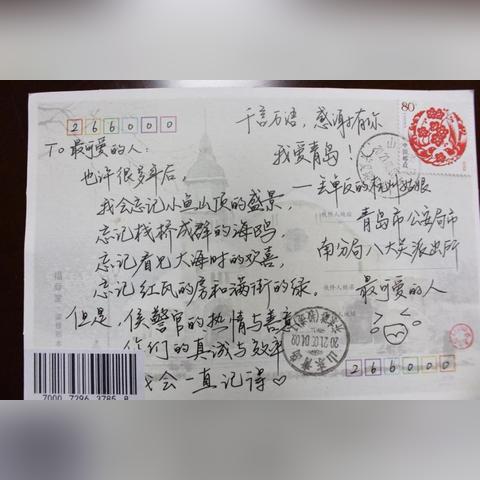 266000
千言万语，感谢有你
To 最可爱的人：
我爱青岛！
也许很多年后，
——丢单反的杭州姑娘
我会忘记小鱼山顶的盛景，
青岛市公安局市
忘记栈桥成群的海鸥，
南分局八大关派出所
忘记看见大海时的欢喜，
最可爱的人
忘记红瓦的房和满街的绿。
但是，侯警官的热情与善意
你们的真诚与效率
我会一直记得♡
80
中国邮政
266000
7000 7296 3785 8